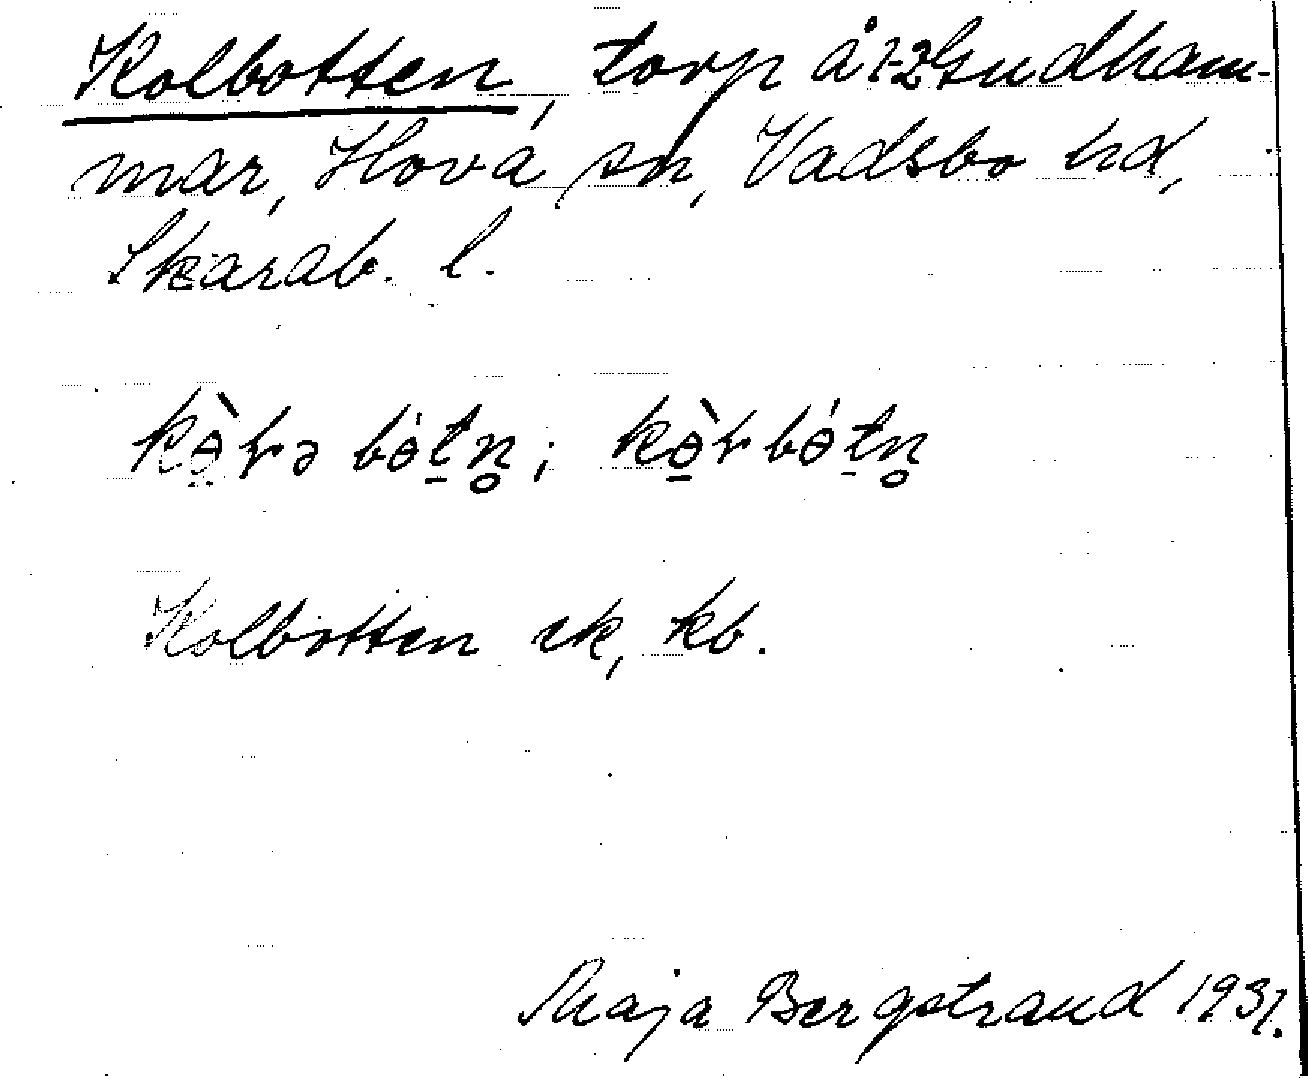 Kolbotten, torp å 1-2 Gudham-
mar, Hova sn, Vadsbo hd,
Skarab. l.
kɵ̱̀ɽə bɵ́t̠n̥; kɵ̱̀ɽbɵ́t̠n̥
Kolbotten ek, kb.
Maja Bergstrand 1931.